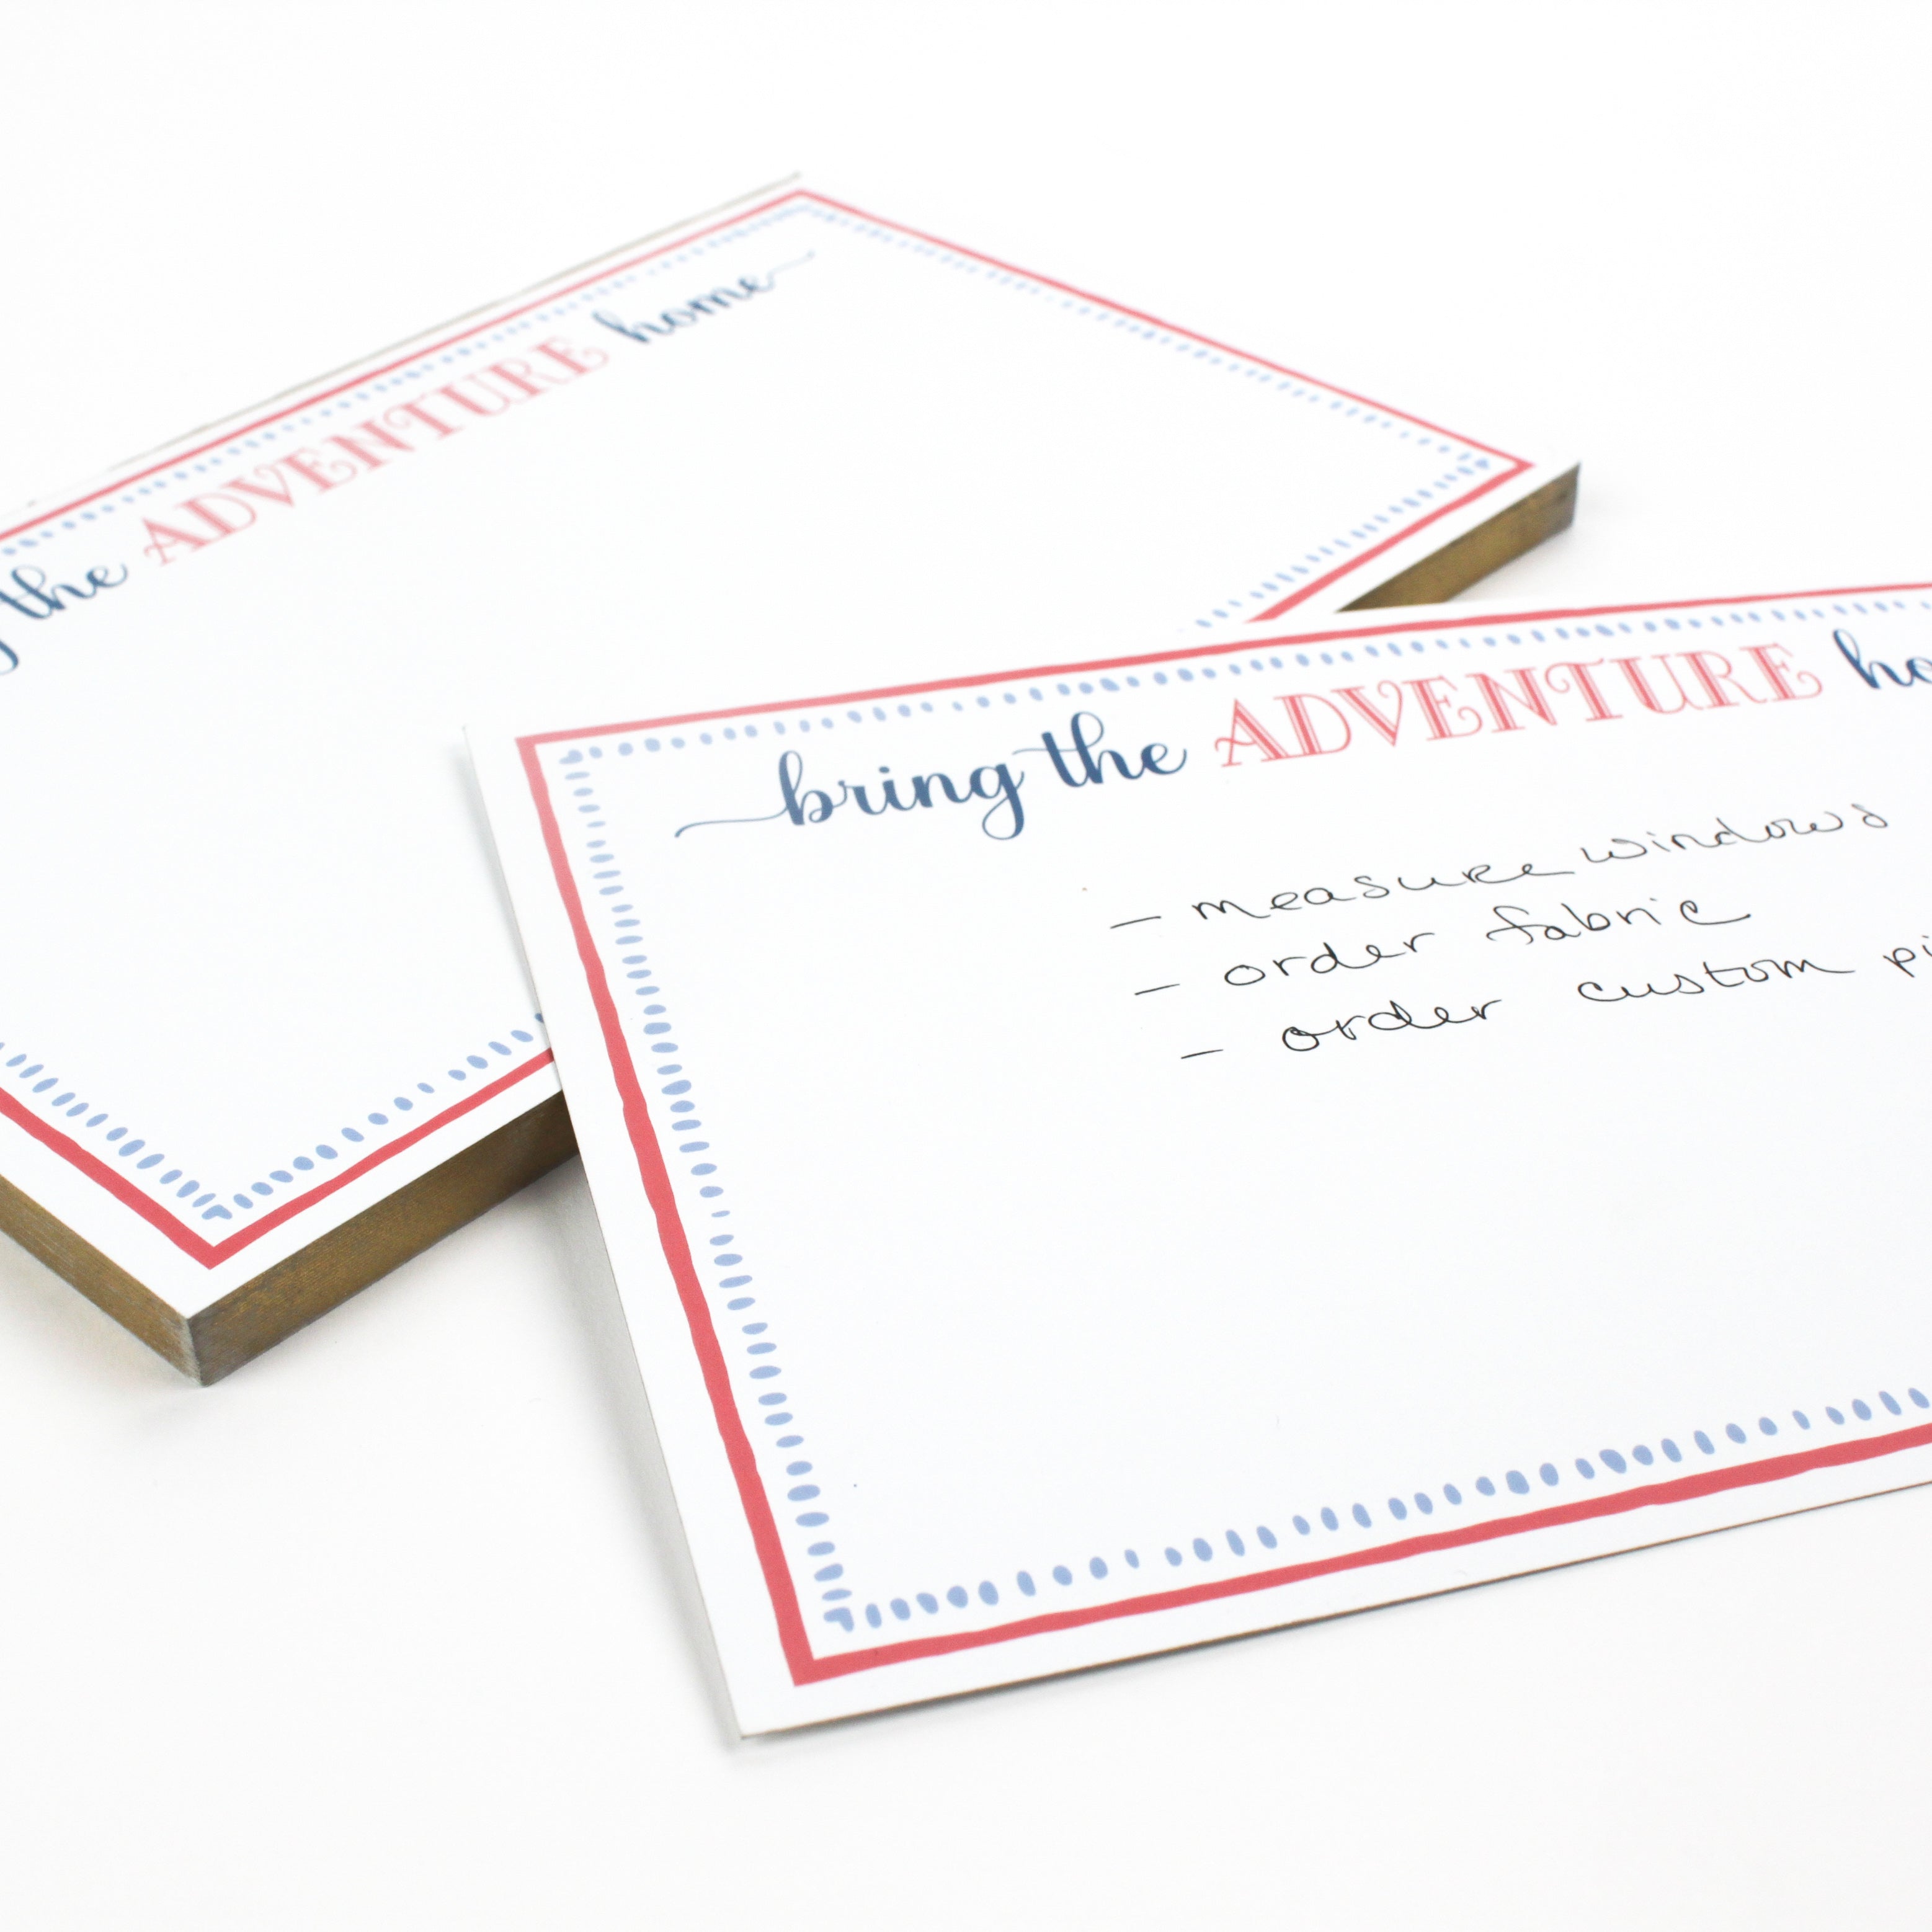 the ADVENTURE home
bring the ADVENTURE ho
- measure windows
- order fabric
- order custom pi